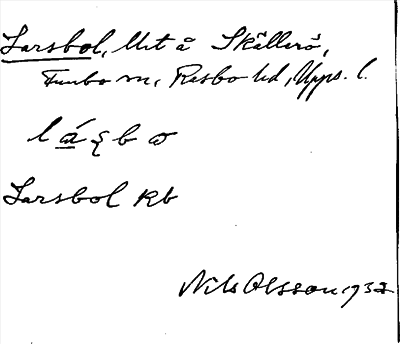 Larsbol, Utt å Skällerö,
Funbo sn, Rasbo hd, Upps. l.
l á ꞩ b ω
Larsbol kb
Nils Olsson 1932